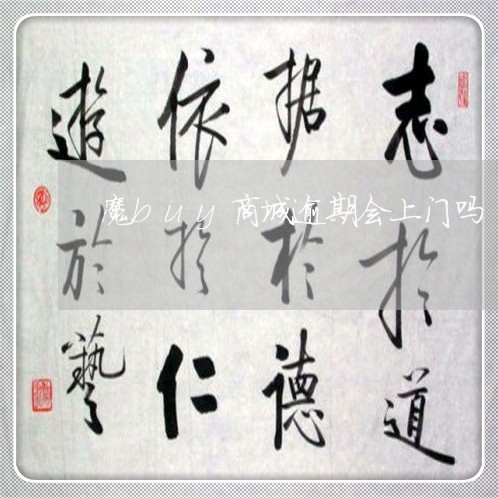 志於道
据於德
依於仁
遊於藝
魔buy商城逾期会上门吗